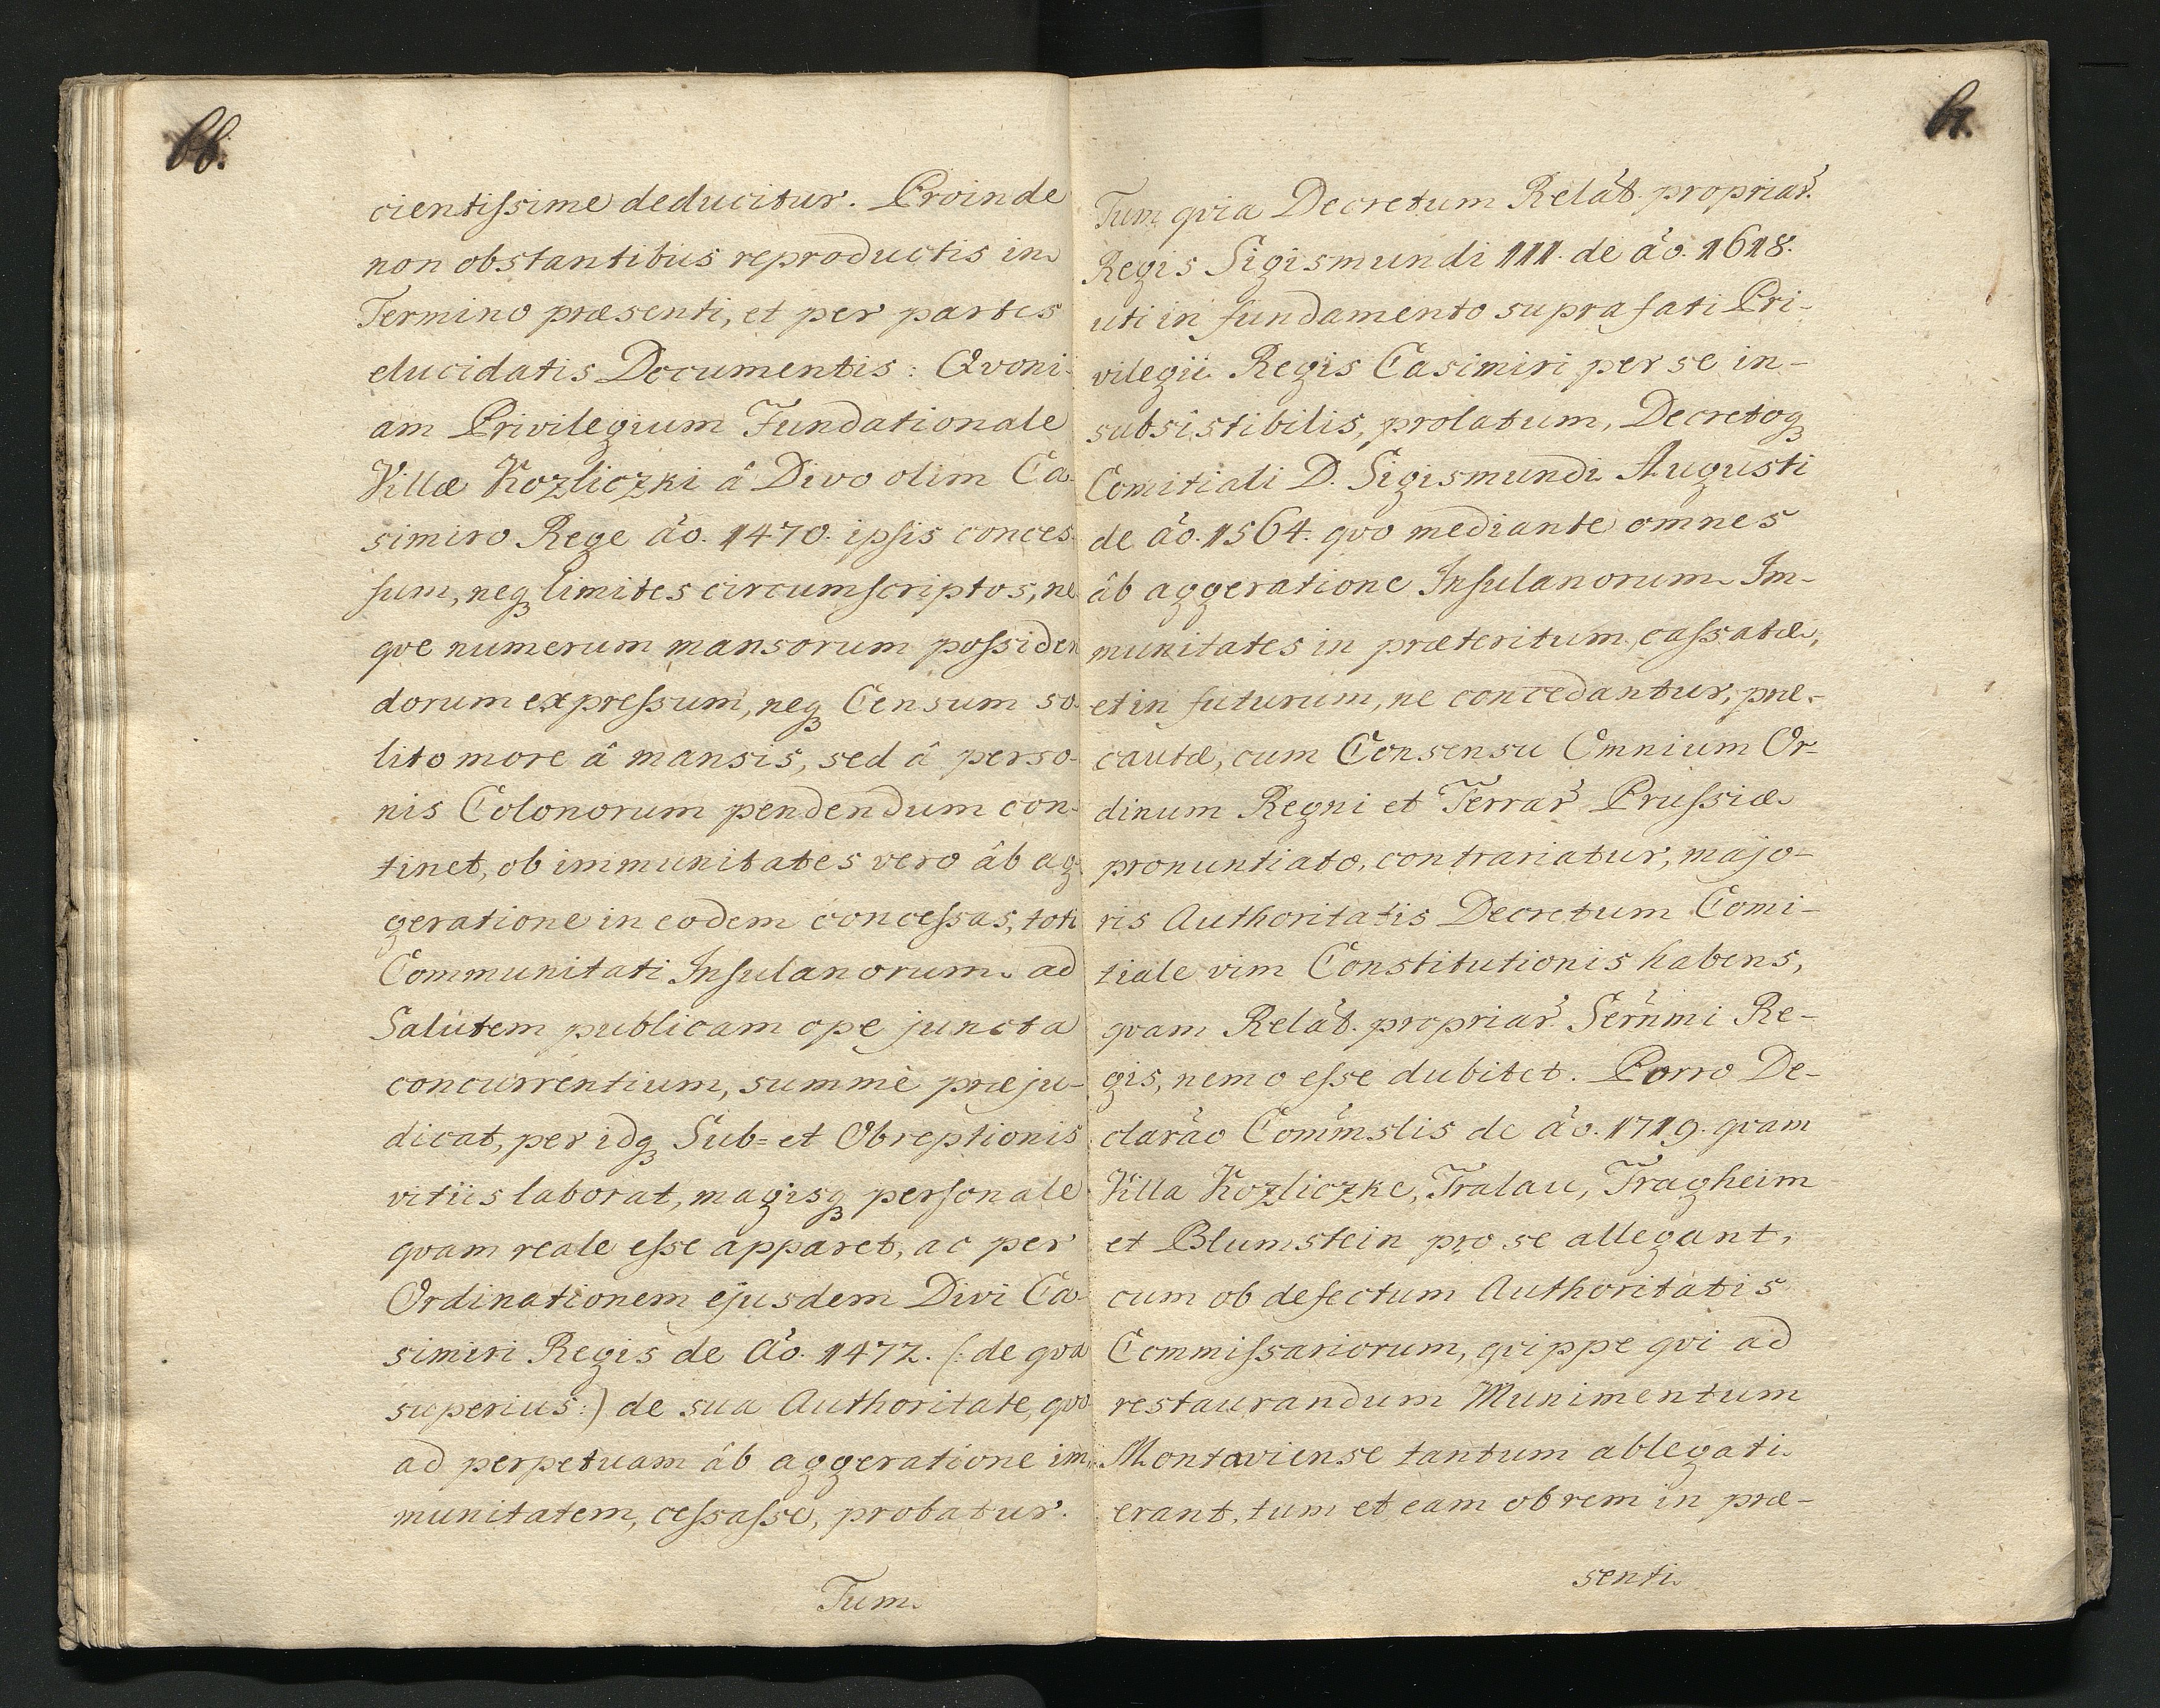 66.
cientiſsime deducitur. Proinde
non obstantibus reproductis in
Termino præsenti, et per partes
elucidatis Documentis: Qvoni-
am Privilegium Fundationale
Villæ Kozliczki â Divo olim Ca-
simiro Rege ão. 1470. ipſis conces-
ſum, neqȝ limites circumſcriptos, ne
qve numerum mansorum poſsiden
dorum expreſsum, neqȝ Censum so-
lito more â mansis, sed â perso-
nis Colonorum pendendum con-
tinet, ob immunitates vero âb ag-
geratione in eodem conceſsas, toti
Communitati Inſulanorum ad
Salutem publicam ope juncta
concurrentium, summè præju-
dicat, per idqȝ Sub= et Obreptionis
vitiis laborat, magisqȝ perſonale
qvam reale eſse apparet, ac per
Ordinationem ejusdem Divi Ca-
simiri Regis de Ao. 1472. (: de qva
superius :) de sua Authoritate, qvo
ad perpetuam âb aggeratione im-
munitatem, ceſsaſse, probatur.
Tum
67.
Tum qvia Decretum Relãt. propriar̃.
Regis Sigismundi III. de ão. 1618.
uti in fundamento supra fati Pri-
vilegii Regis Casimiri per se in-
subsistibilis, prolatum, Decretoqȝ
Comitiali D. Sigismundi Augusti
de ão. 1564. qvo mediante omnes
âb aggeratione Inſulanorum Im-
munitates in præteritum caſsatæ,
et in futurum, ne concedantur, præ-
cautæ, cum Consensu Omnium Or-
dinum Regni et Terrar̃ Pruſsiæ
pronuntiato, contrariatur, majo-
ris Authoritatis Decretum Comi-
tiale vim Constitutionis habens,
qvam Relãt. propriar̃. Ser̃nmi Re-
gis, nemo eſse dubitet. Porro De-
clarão Com̃mslis de ão. 1719. qvam
Villa Kozliczke, Tralau, Tragheim
et Blumstein pro se allegant,
cum ob defectum Authoritatis
Commiſsariorum, qvippe qvi ad
restaurandum Munimentum
Montaviense tantum ablegati
erant, tum et eam ob rem in præ-
senti